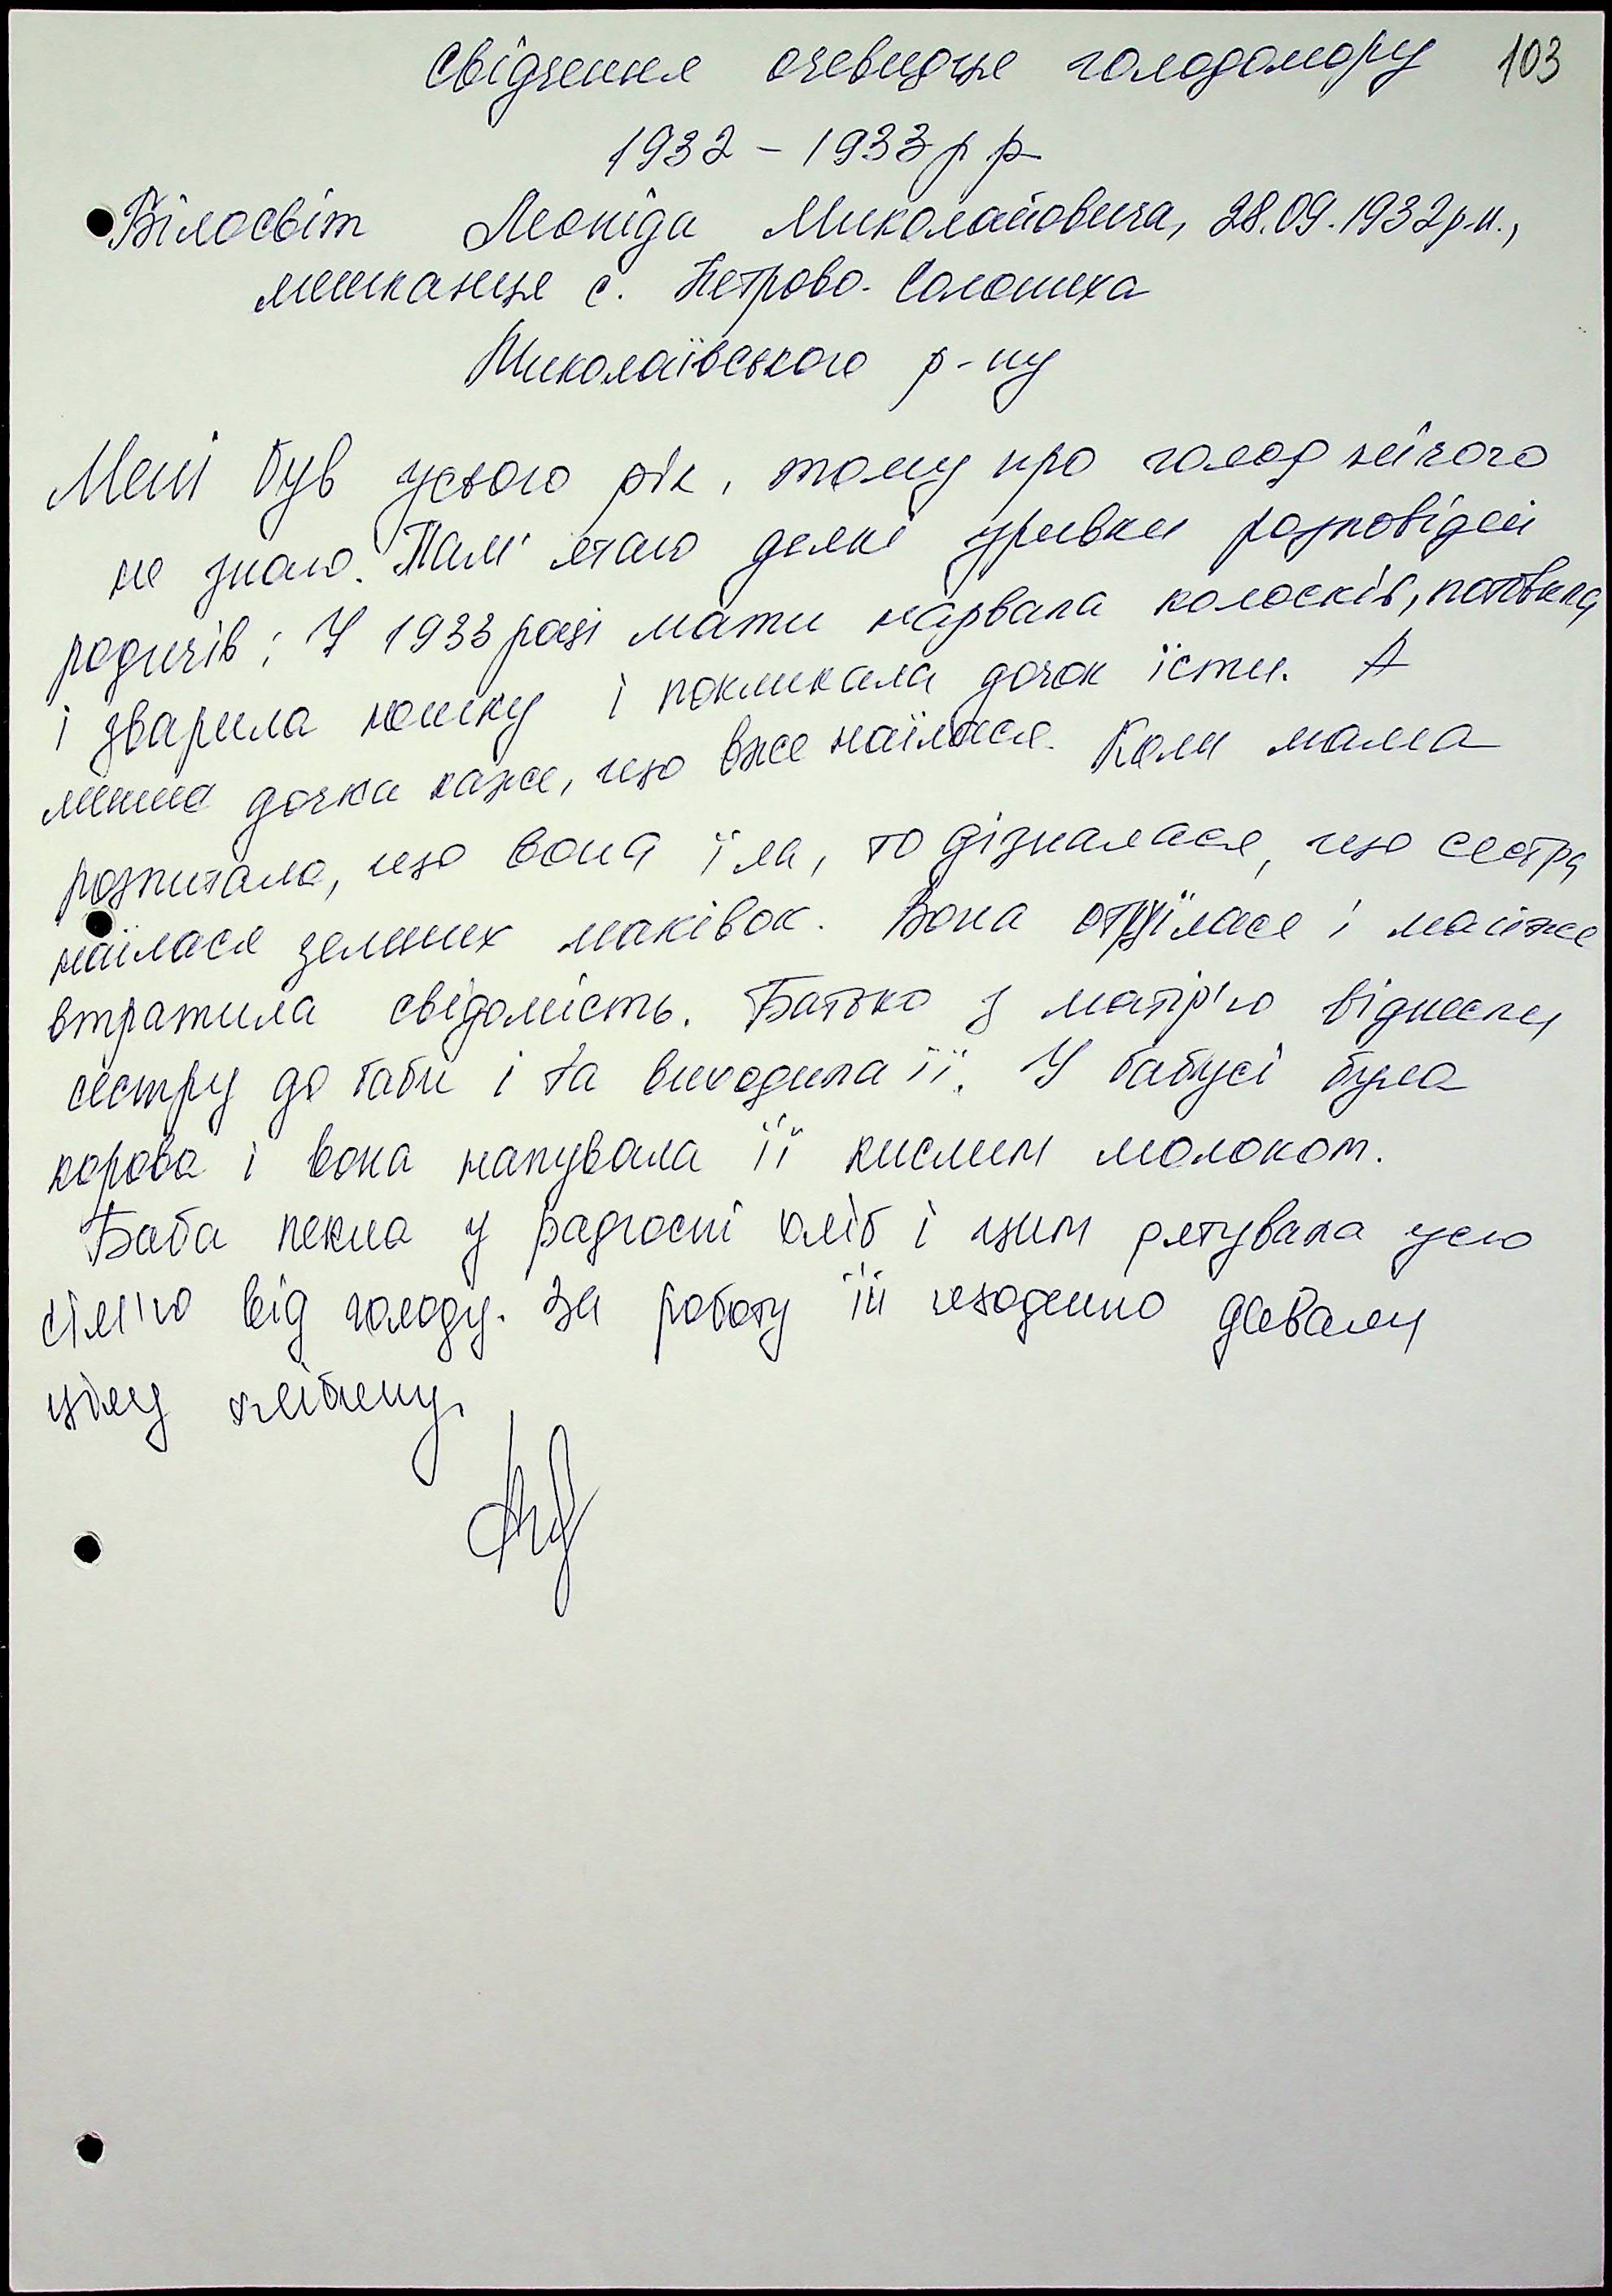 Свідчення очевидця голодомору 103
1932 – 1933 р р
Білосвіт Леоніда Миколайовича, 28.09.1932 р.н.,
мешканця с. Петрово-Солониха
Миколаївського р-ну
Мені був усього рік, тому про голод нічого
не знаю. Пам'ятаю деякі уривки розповідей
родичів: У 1933 році мати нарвала колосків, потовкла
і зварила юшку і покликала дочок їсти. А
менша дочка каже, що вже наїлася. Коли мама
розпитала, що вона їла, то дізналася, що сестра
наїлася зелених маківок. Вона отруїлася і майже
втратила свідомість. Батько з матір'ю віднесли
сестру до баби і та виходила її. У бабусі була
корова і вона напувала її кислим молоком.
Баба пекла у радгоспі хліб і цим рятувала усю
сім'ю від голоду. За роботу їй щоденно давали
цілу хлібину.